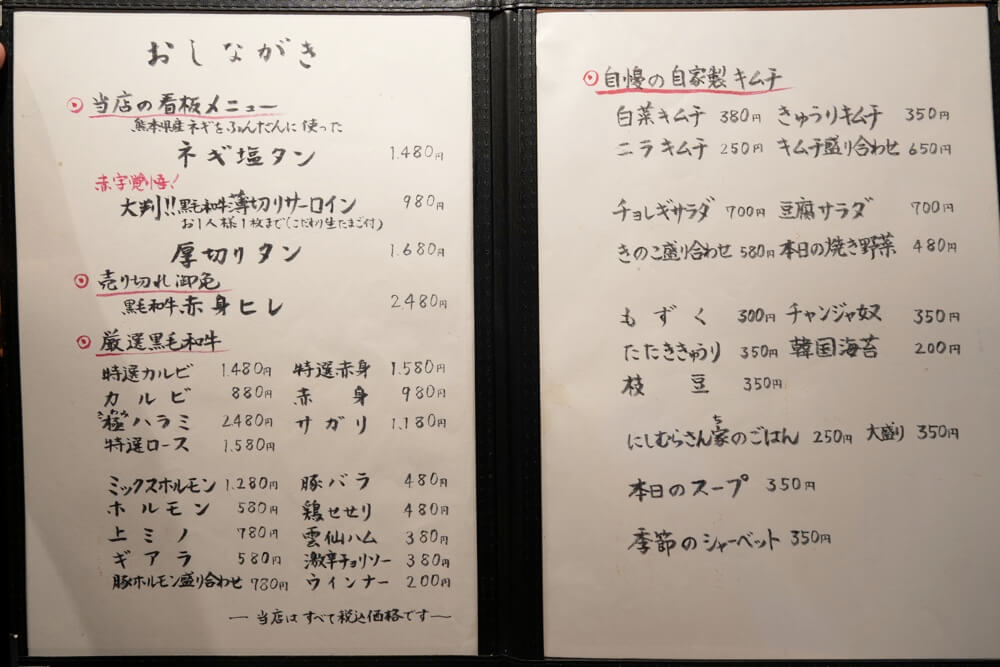 おしながき
当店の看板メニュー
熊本県産ネギをふんだんに使った
ネギ塩タン 1.480円
赤字覚悟!
大判!!黒毛和牛薄切りサーロイン 980円
お1人様1枚まで(こだわり生たまご付)
厚切りタン 1.680円
売り切れ御免
黒毛和牛赤身ヒレ 2.480円
厳選黒毛和牛
特選カルビ 1.480円 特選赤身 1.580円
カルビ 880円 赤身 980円
きわみ
極ハラミ 2480円 サガリ 1.180円
特選ロース 1.580円
ミックスホルモン 1.280円 豚バラ 480円
ホルモン 580円 鶏せせり 480円
上ミノ 780円 雲仙ハム 380円
ギアラ 580円 激辛チョリソー 380円
豚ホルモン盛り合わせ 780円 ウインナー 200円
― 当店はすべて税込価格です ―
自慢の自家製キムチ
白菜キムチ 380円 きゅうりキムチ 350円
ニラキムチ 250円 キムチ盛り合わせ 650円
チョレギサラダ 700円 豆腐サラダ 700円
きのこ盛り合わせ 580円 本日の焼き野菜 480円
もずく 300円 チャンジャ奴 350円
たたききゅうり 350円 韓国海苔 200円
枝豆 350円
ち
にしむらさん家のごはん 250円 大盛り 350円
本日のスープ 350円
季節のシャーベット 350円